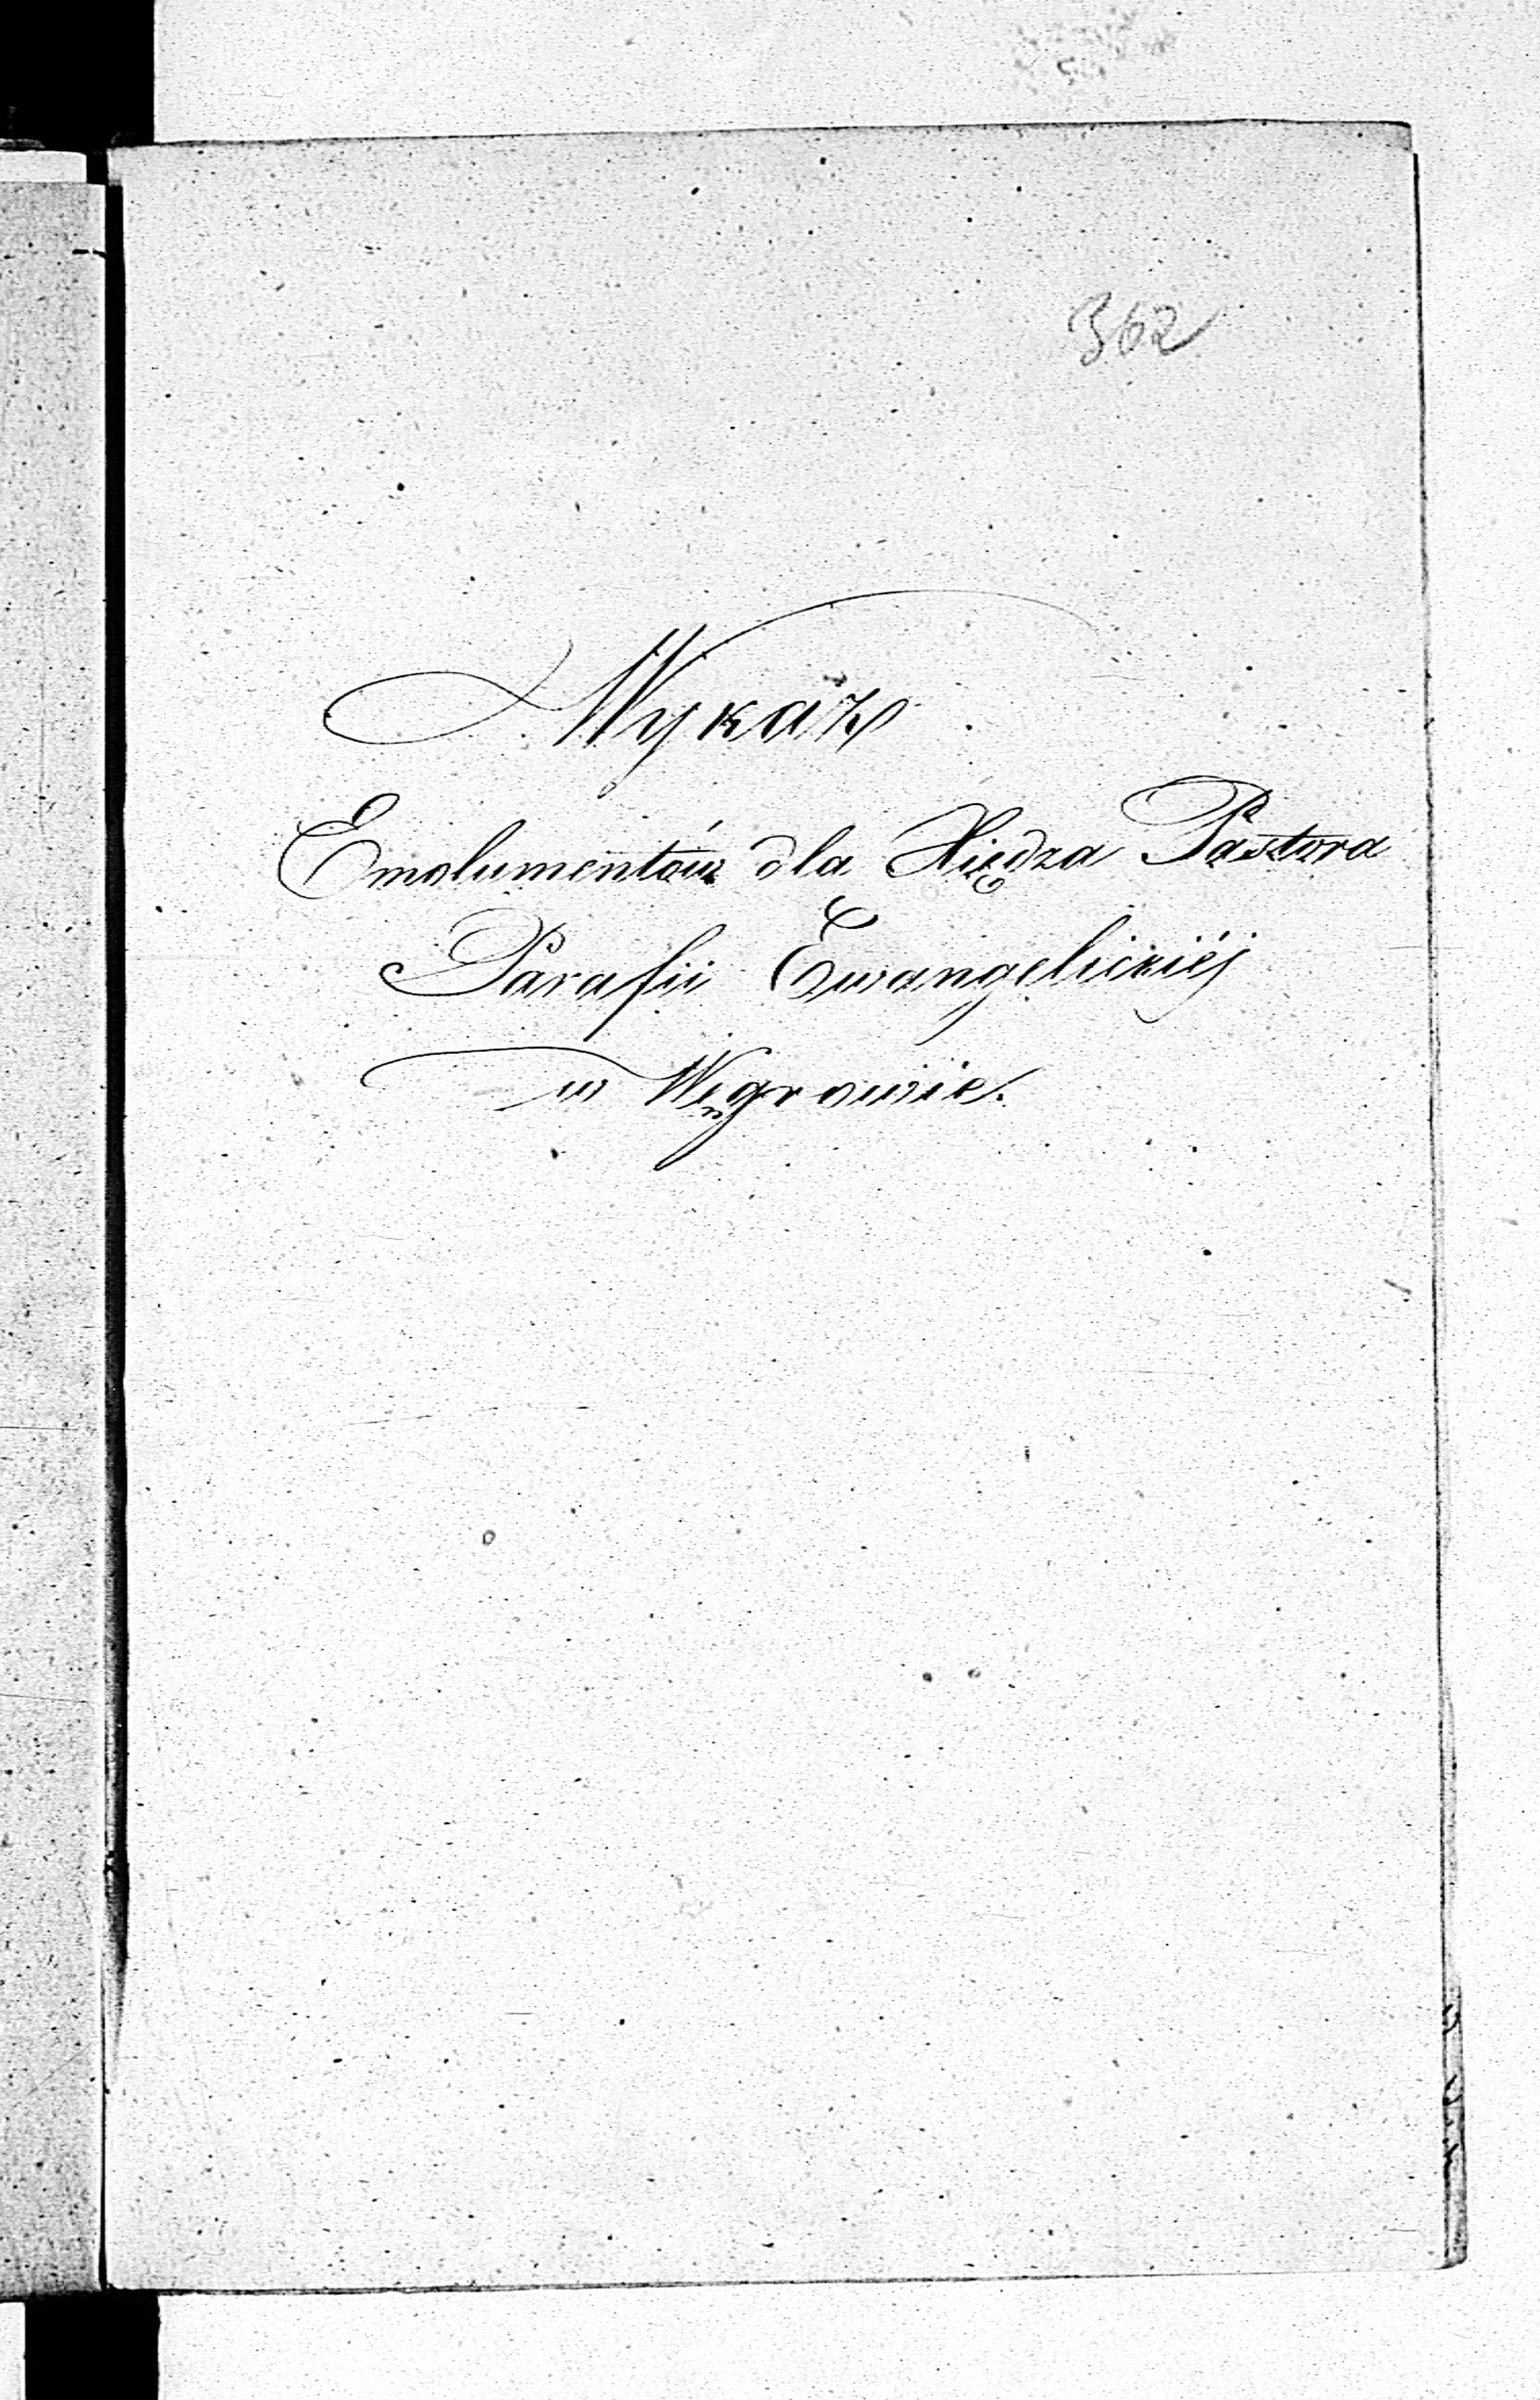 362
Wykaz
Emolumentów dla Xiędza Pastora
Parafii Ewangelickiéj
w Węgrowie.